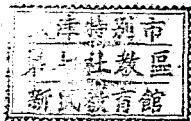 天津特別市
第社教區
新民教育館